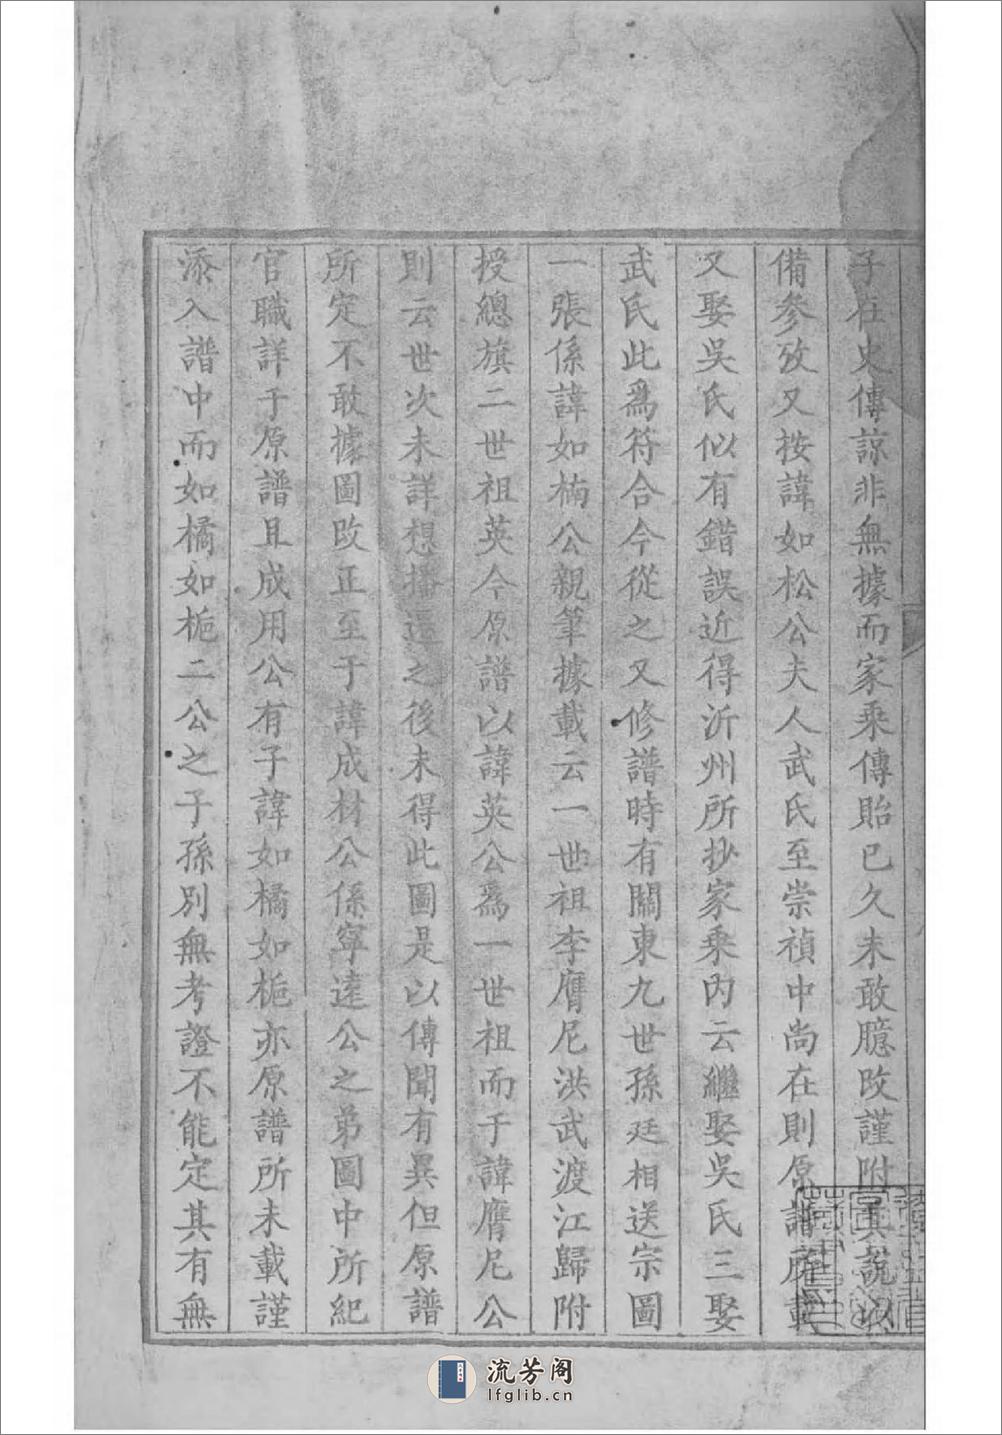 子在史傳諒非無據而家乘傳貽已久未敢臆改謹附其說以
備參攷又按諱如松公夫人武氏至崇禎中尚在則原譜所載
又娶吳氏似有錯誤近得沂州所抄家乘內云繼娶吳氏三娶
武氏此爲符合今從之又修譜時有關東九世孫廷相送宗圖
一張係諱如楠公親筆據載云一世祖李膺尼洪武渡江歸附
授總旗二世祖英今原譜以諱英公爲一世祖而于諱膺尼公
則云世次未詳想播遷之後未得此圖是以傳聞有異但原譜
所定不敢據圖改正至于諱成材公係寧遠公之弟圖中所紀
官職詳于原譜且成用公有子諱如橘如梔亦原譜所未載謹
添入譜中而如橘如梔二公之子孫別無考證不能定其有無
流芳阁
lfglib.cn